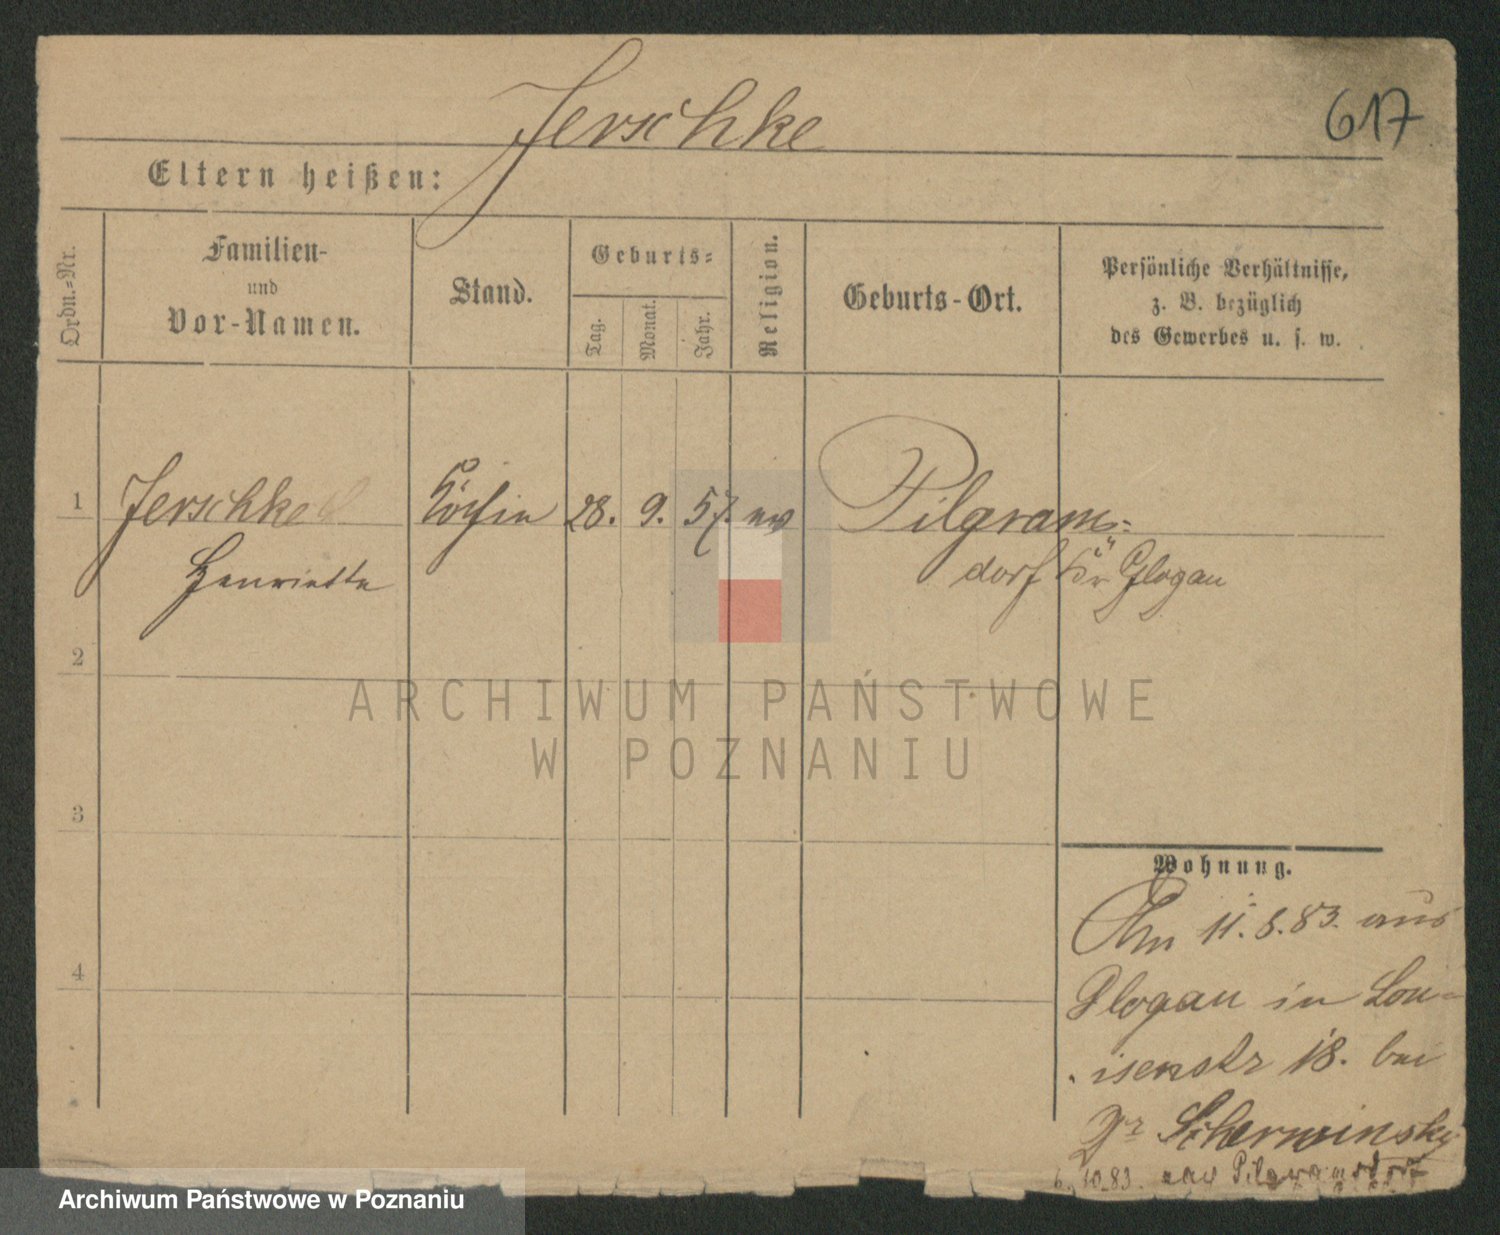 Jerschke
617
Eltern heißen:
Ordn.=Nr.
Familien-
und
Vor-Namen.
Stand.
Geburts=
Tag.
Monat.
Jahr.
Religion.
Geburts-Ort.
Persönliche Verhältnisse,
z. B. bezüglich
des Gewerbes u. s. w.
1
Jerschke
Köchin
28.
9.
57.
ev
Pilgrams=
Henriette
dorf Kr Glogau
2
ARCHIWUM PAŃSTWOWE
W POZNANIU
3
Wohnung.
Am 11.8.83. aus
Glogau in Lou=
isenstr 18. bei
Scherwinsky
4
6.10.83. nach Pilgramsdorf
Archiwum Państwowe w Poznaniu